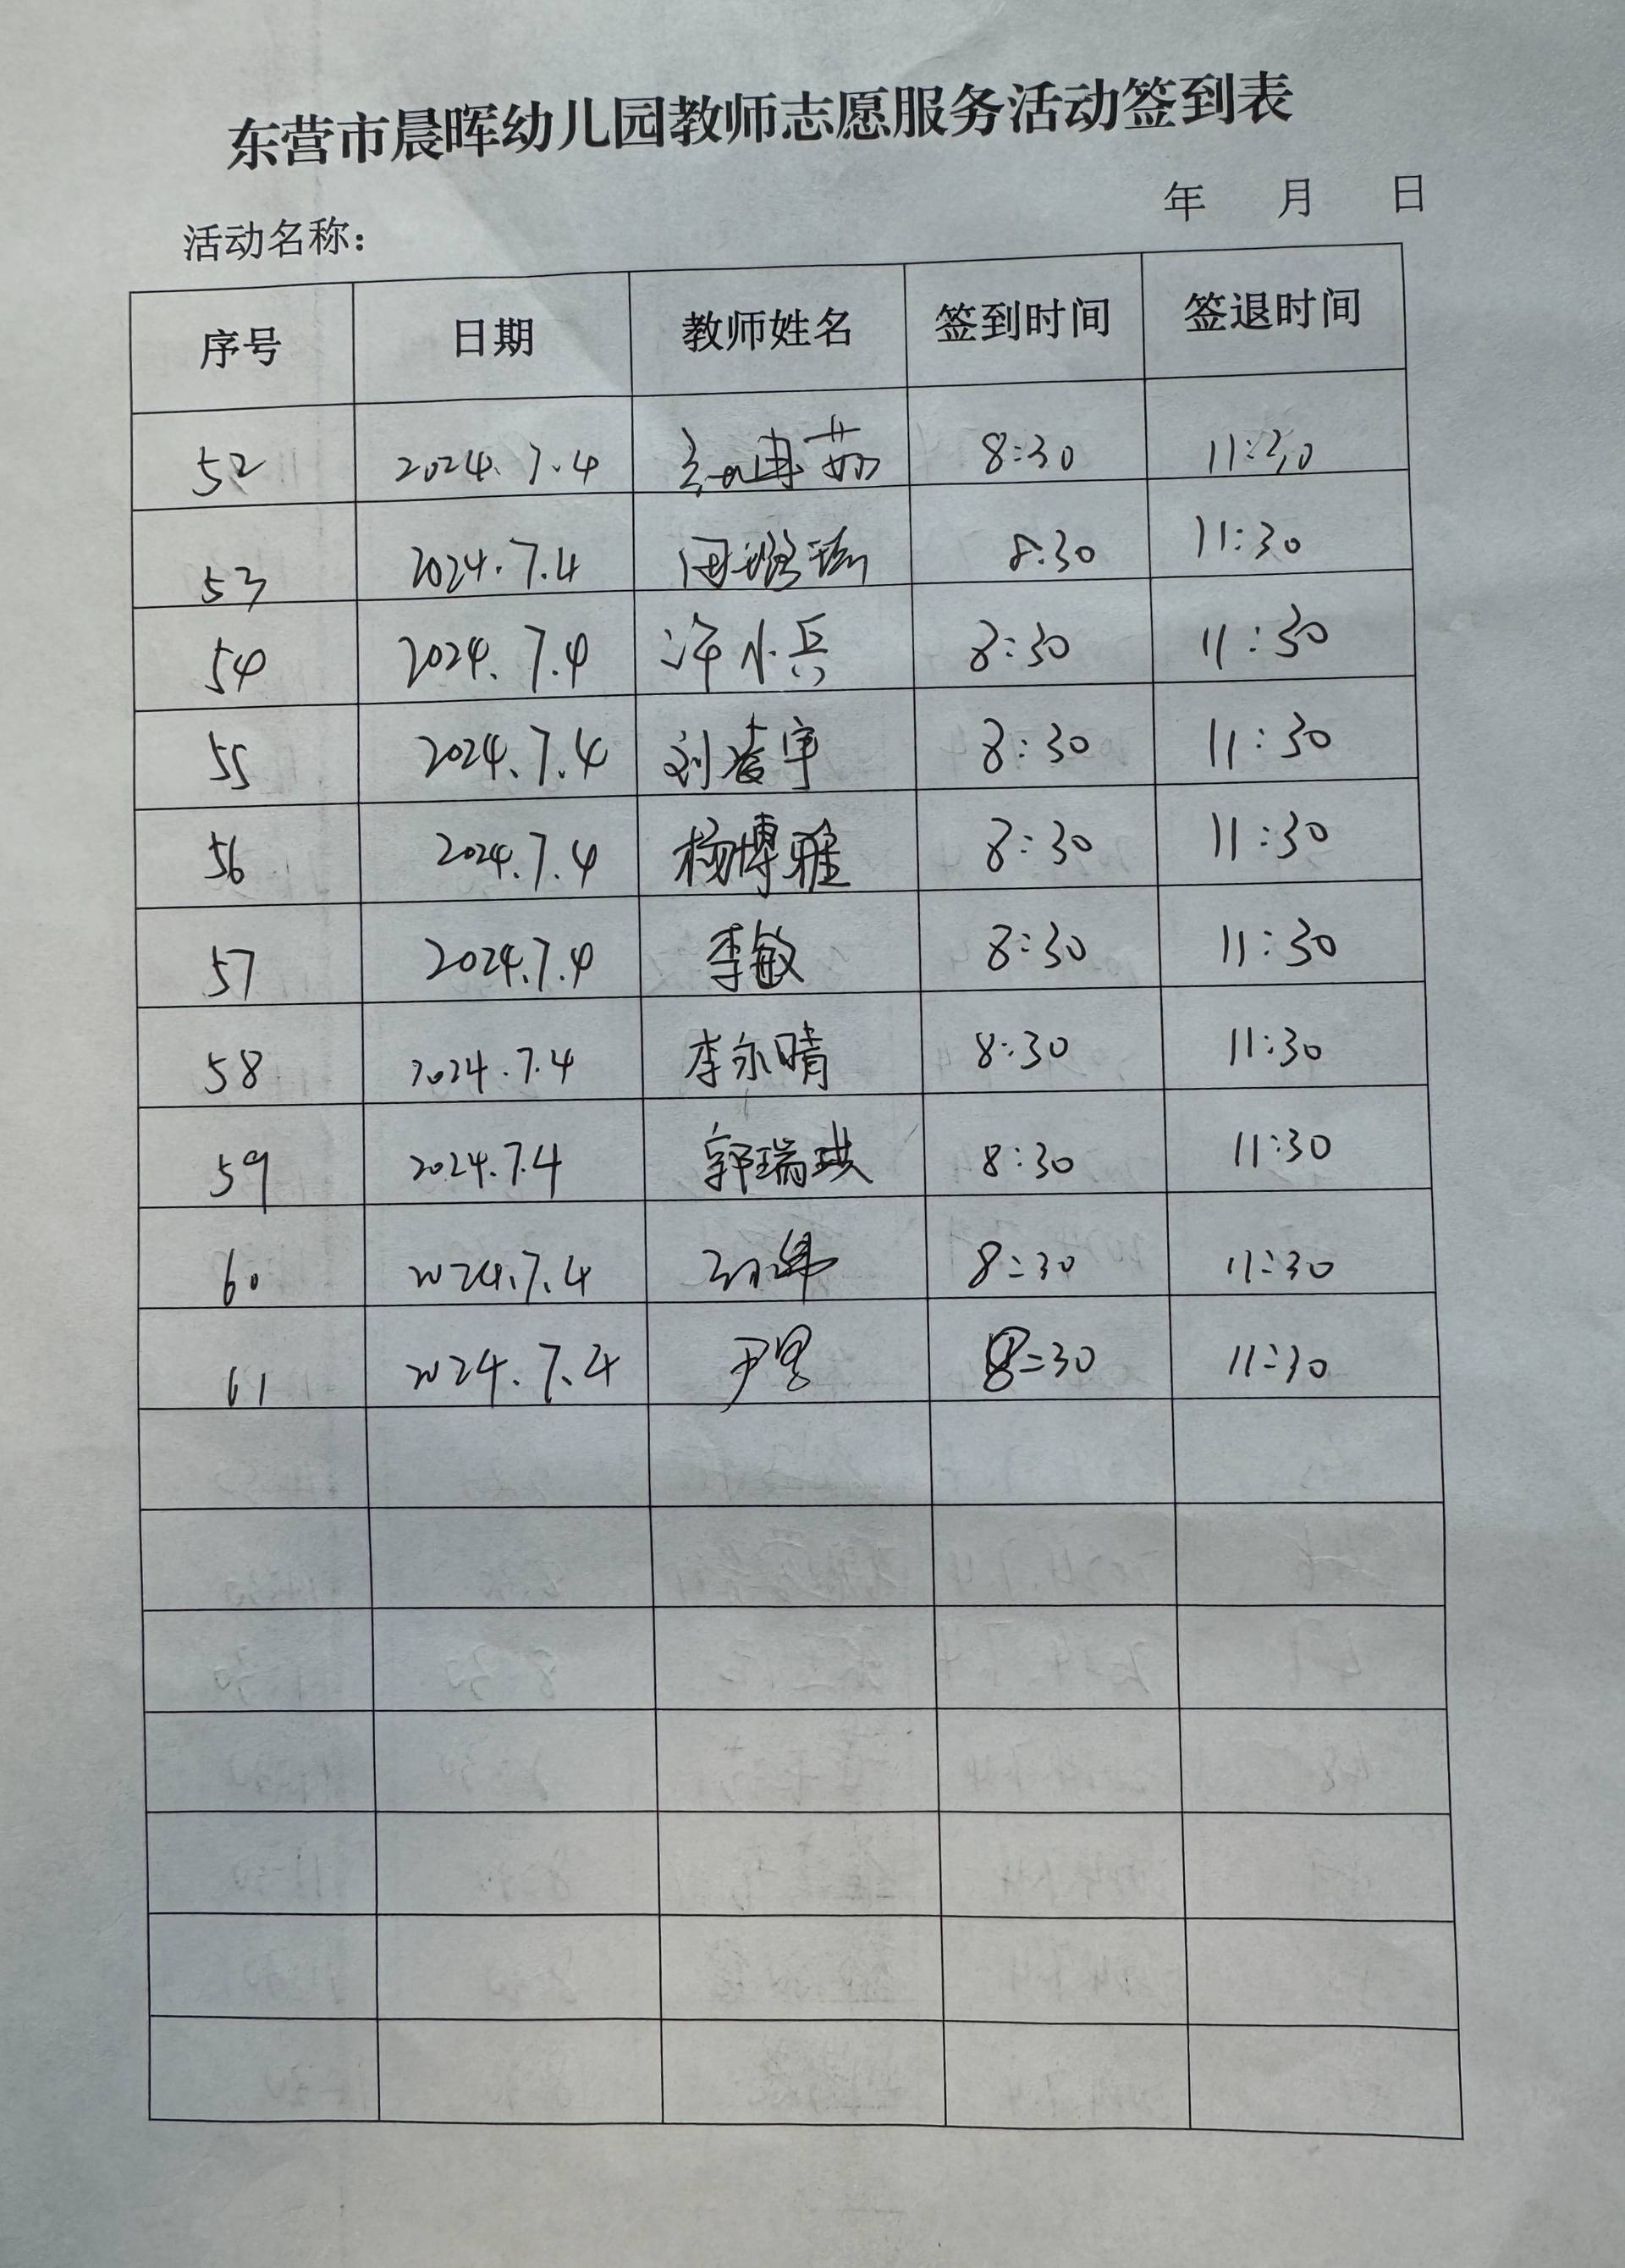 东营市晨晖幼儿园教师志愿服务活动签到表
年 月 日
活动名称：
序号 日期 教师姓名 签到时间 签退时间
52 2024.7.4 8:30 11:30
53 2024.7.4 8:30 11:30
54 2024.7.4 许小兵 8:30 11:30
55 2024.7.4 刘凌宇 8:30 11:30
56 2024.7.4 杨博雅 8:30 11:30
57 2024.7.4 李敏 8:30 11:30
58 2024.7.4 李永晴 8:30 11:30
59 2024.7.4 郭瑞琪 8:30 11:30
60 2024.7.4 8:30 11:30
61 2024.7.4 8:30 11:30